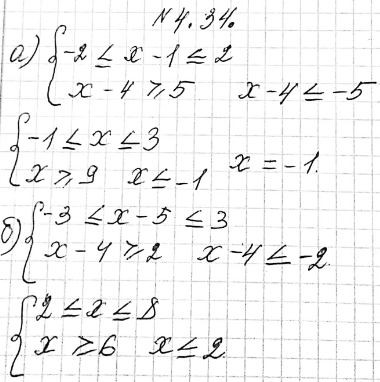 № 4.34.
а) { -2 ≤ x - 1 ≤ 2
x - 4 ≥ 5 x - 4 ≤ -5
{ -1 ≤ x ≤ 3
x ≥ 9 x ≤ -1 x = -1.
б) { -3 ≤ x - 5 ≤ 3
x - 4 ≥ 2 x - 4 ≤ -2.
{ 2 ≤ x ≤ 8
x ≥ 6 x ≤ 2